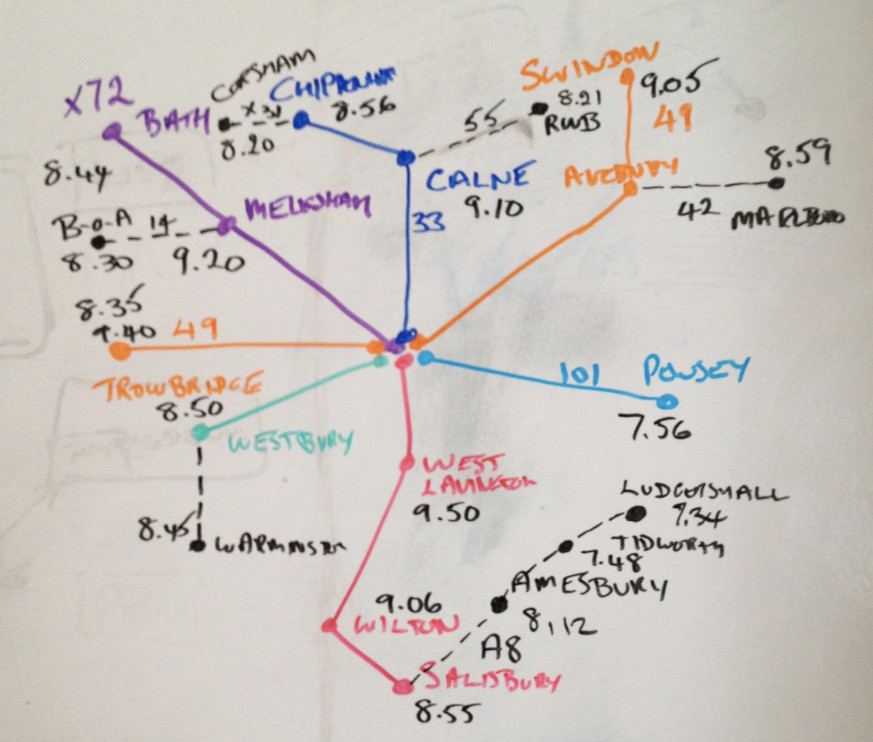 X72
BATH
8.44
CORSHAM
X31
8.20
CHIPPENHAM
8.56
55
8.21
RWB
SWINDON
9.05
49
CALNE
9.10
33
AVEBURY
42
8.59
MARLBORO
MELKSHAM
B-o-A
14
8.30
9.20
8.35
9.40
49
TROWBRIDGE
8.50
WESTBURY
8.45
WARMINSTER
101
PEWSEY
7.56
WEST
LAVINGTON
9.50
9.06
WILTON
SALISBURY
8.55
LUDGERSHALL
7.34
TIDWORTH
7.48
AMESBURY
8,12
A8